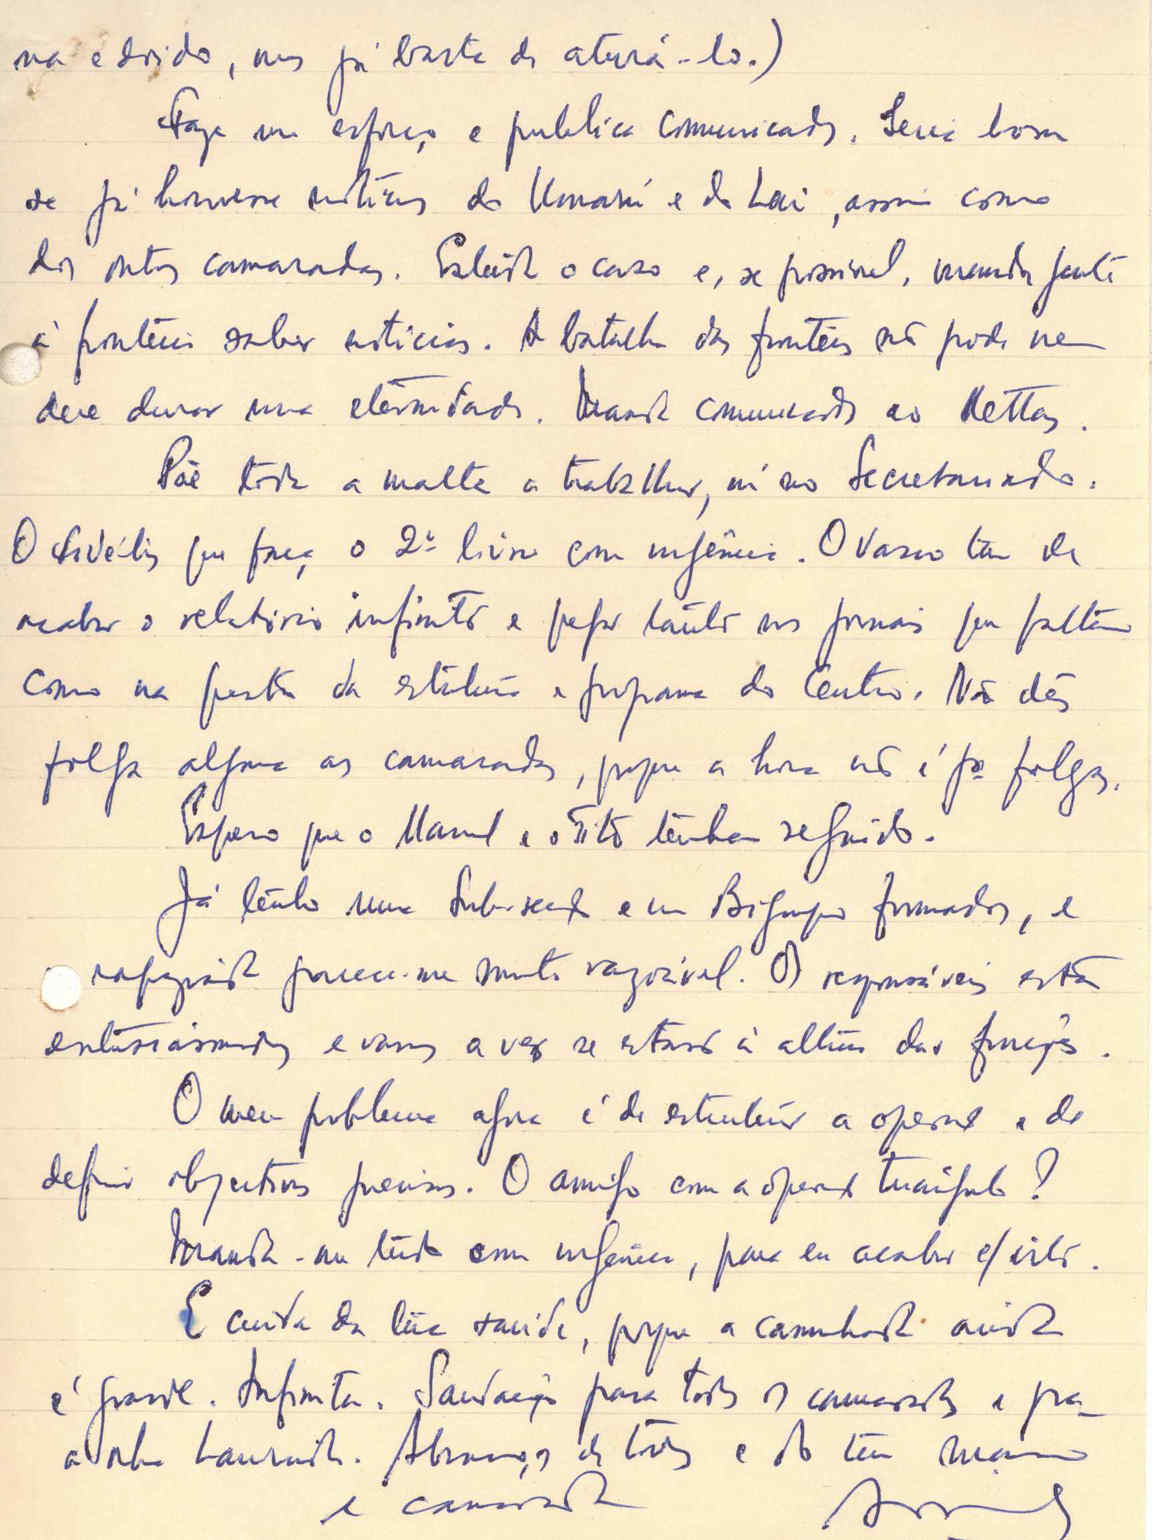 na e doido, mas já basta de aturá-lo.)
Faz um esforço e publica comunicados. Seria bom
se já houvesse notícias do e do Loi, assim como
dos outros camaradas. Estuda o caso e, se possível, manda gente
à fronteira saber notícias. A batalha das fronteiras não pode nem
deve durar uma eternidade. Manda comunicados ao Mettas.
Põe toda a malta a trabalhar, aí no Secretariado.
O que faça o 2º livro com urgência. O Vasco tem de
acabar o relatório infinito e pegar tanto nos jornais que faltam
como na feitura da estatutos e programa do Centro. Não dês
folga alguma aos camaradas, porque a hora não é pª folgas.
Espero que o Manuel e o Tito tenham seguido.
Já tenho uma Sub-secção e um Bigrupo formados, e
rapaziada parece-me muito razoável. Os responsáveis estão
entusiasmados e vamos a ver se estarão à altura das funções.
O meu problema agora é de estruturar a operação e de
definir objectivos precisos. O amigo com a operação triângulo?
Manda-me tudo com urgência, para eu acabar c/ isto.
E cuida da tua saúde, porque a caminhada ainda
é grande. Infinita. Saudações para todos os camaradas e pra
a Lourinda. Abraços de todos e do teu mano
e camarada